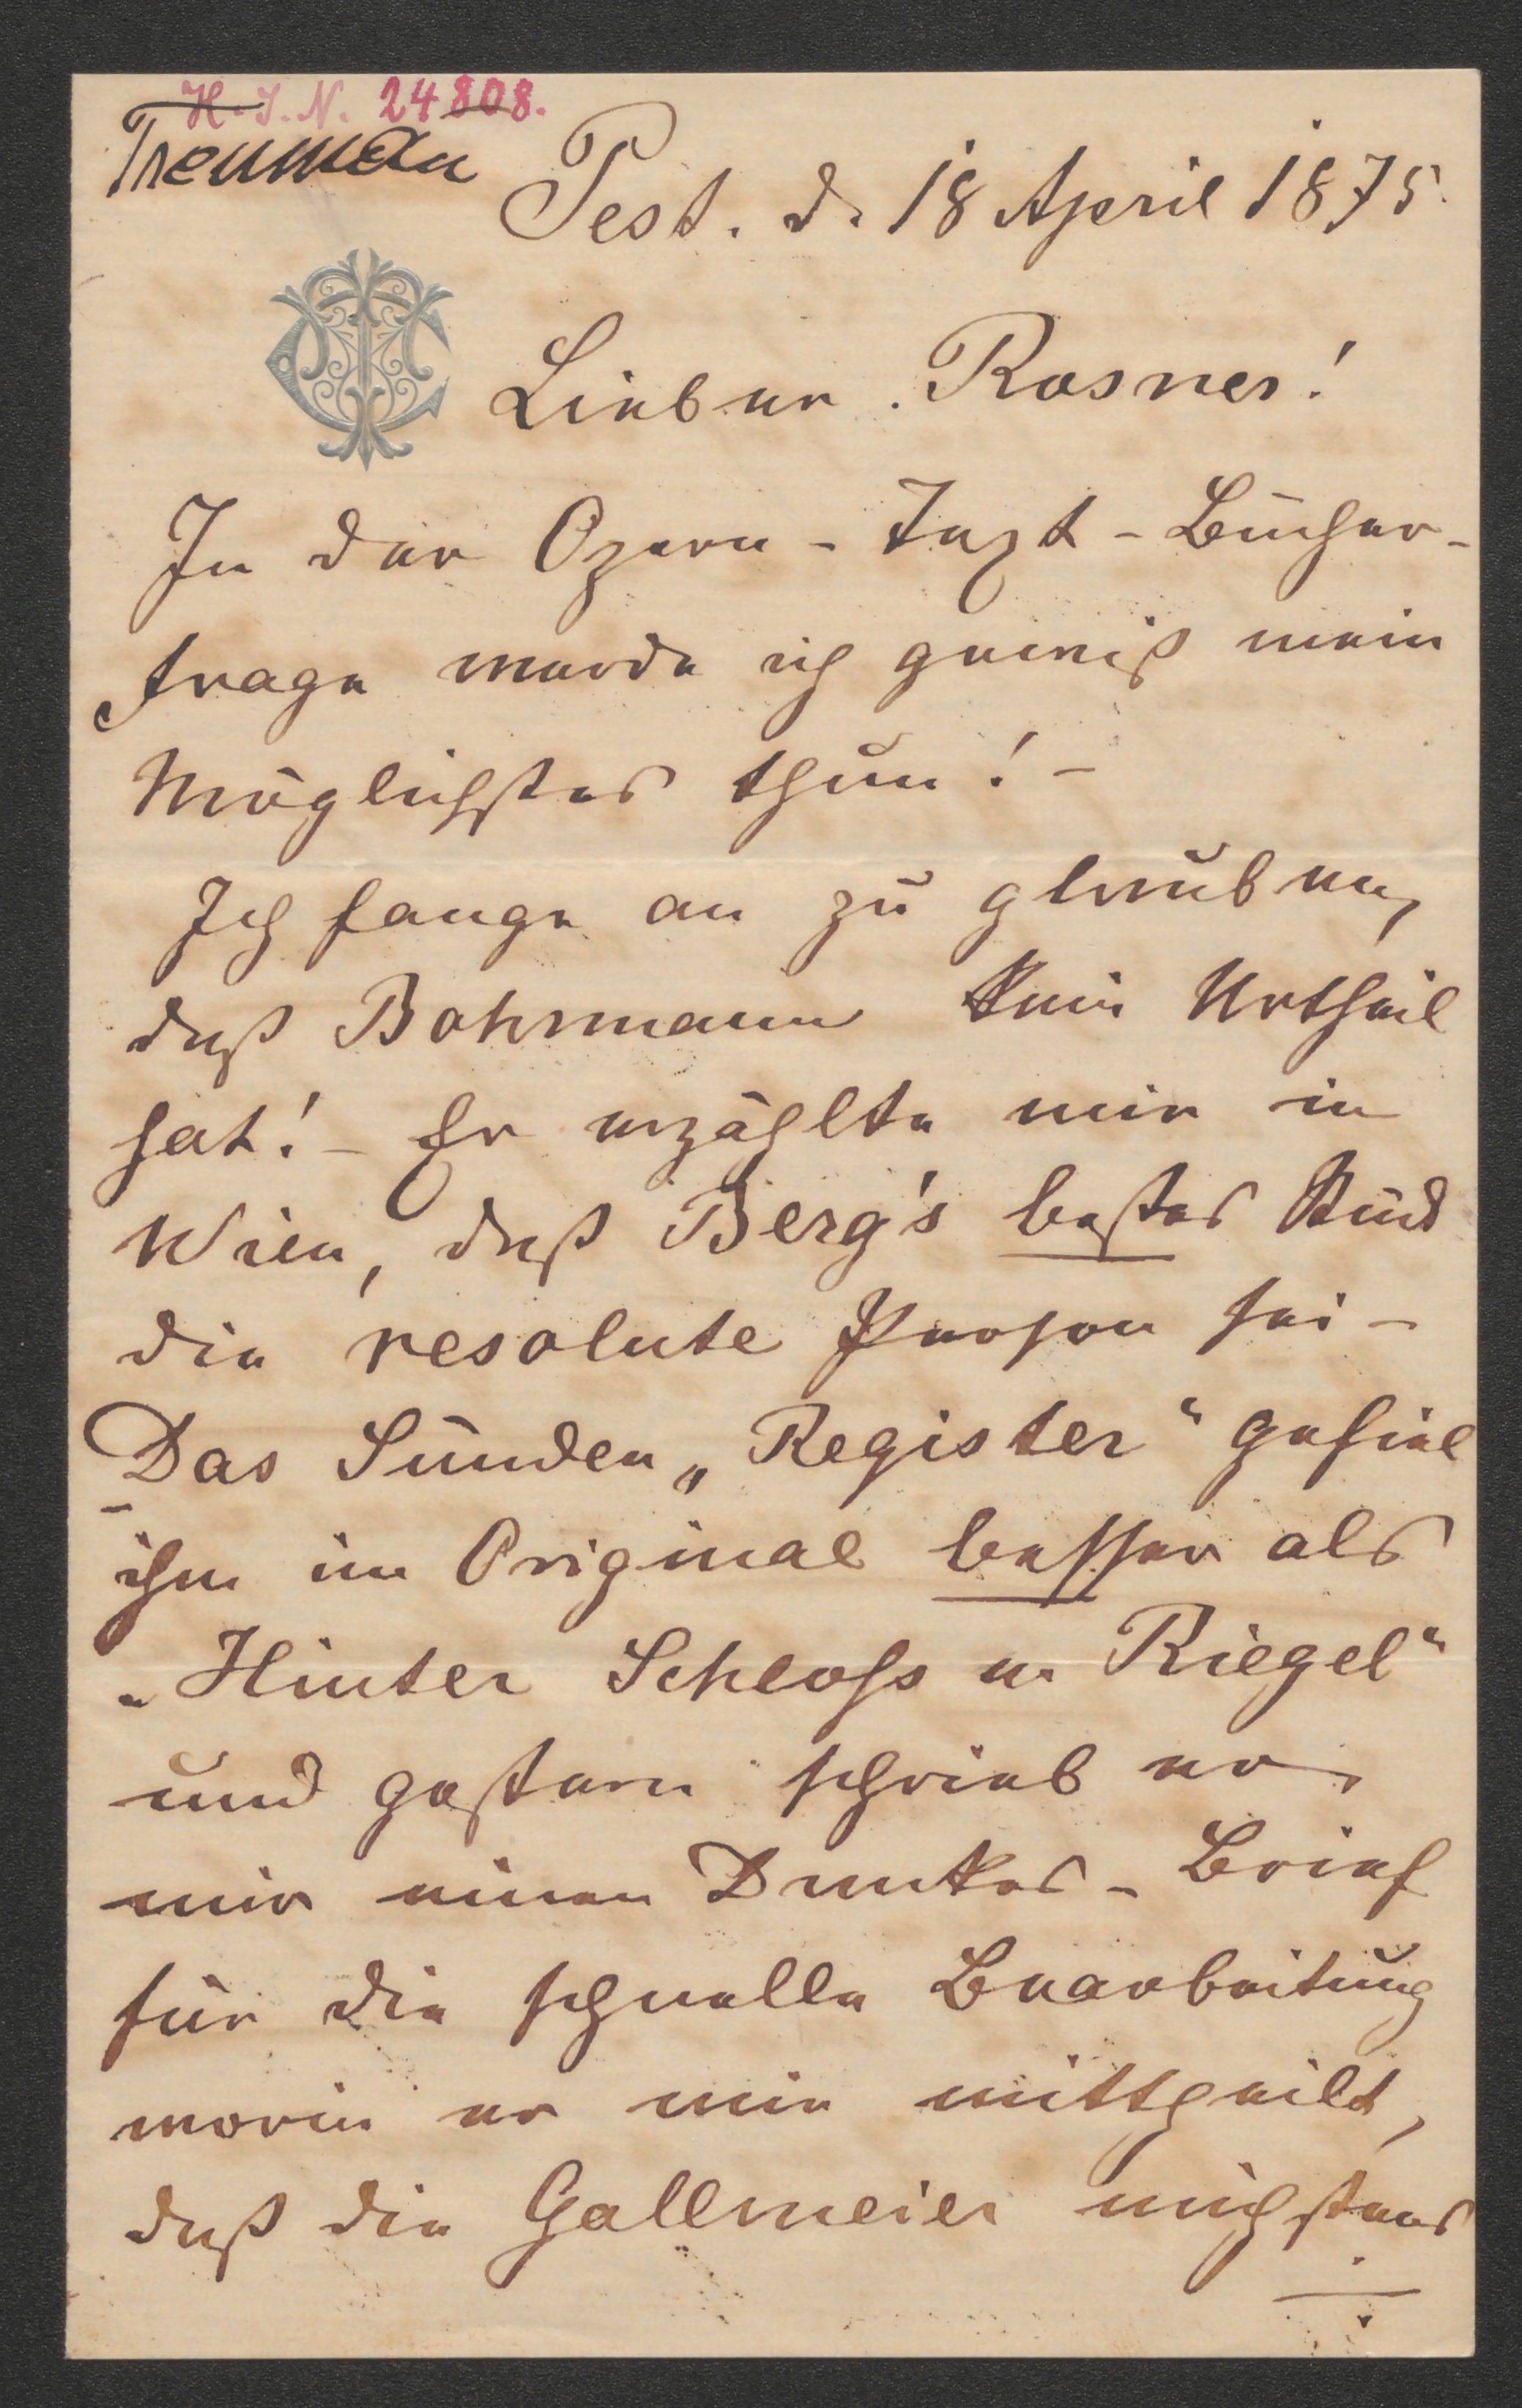 H. I. N. 24808.
Treuman
Pest. d. 18 April 1875.
Lieber Rosner!
In der Opern-Text-Bücher-
frage werde ich gewiß mein
Möglichstes thun! –
Ich fange an zu glauben,
daß Bohrmann kein Urtheil
hat! – Er erzählte mir in
Wien, daß Berg's bestes Stück
die resolute Person sei –
Das Sünden „Register“ gefiel
ihm im Original besser als
„Hinter Schloß u. Riegel“
und gestern schrieb er
mir einen Dankes-Brief
für die schnelle Bearbeitung
worin er mir mittheilt,
daß die Gallmeier nichstens